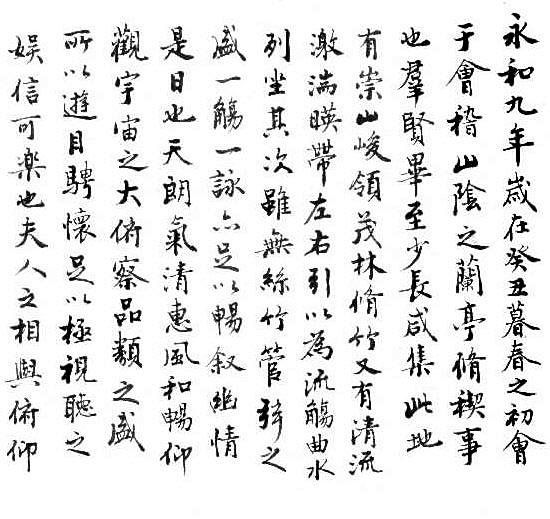 永和九年歲在癸丑暮春之初會
于會稽山陰之蘭亭脩稧事
也羣賢畢至少長咸集此地
有崇山峻領茂林脩竹又有清流
激湍暎帶左右引以為流觴曲水
列坐其次雖無絲竹管弦之
盛一觴一詠亦足以暢敘幽情
是日也天朗氣清惠風和暢仰
觀宇宙之大俯察品類之盛
所以遊目騁懷足以極視聽之
娛信可樂也夫人之相與俯仰